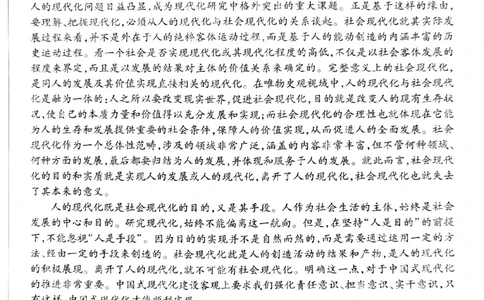 人的现代化问题日益凸显,成为现代化研究中格外突出的重大课题。正是基于这样的缘由,
要理解、把握现代化,必须从人的现代化与社会现代化的关系谈起。社会现代化就其实际发
展过程来看,并不是外在于人的纯粹客体运动过程,而是基于人的能动创造的内涵丰富的历
史运动过程。看一个社会是否实现现代化或其现代化程度的高低,不仅是以社会客体发展的
程度来界定,而且是以发展的结果对主体的价值关系来确定的。完整意义上的社会现代化,
是同人的发展及其价值实现直接相关的现代化。在唯物史观视域中,人的现代化与社会现代
化是融为一体的:人之所以要改变现实世界,促进社会现代化,目的就是改变人的现有生存状
况,使自己的本质力量和价值得以充分发展和实现;而社会现代化的合理性也就体现在它能
为人的生存和发展提供重要的社会条件,保障人的价值实现,从而促进人的全面发展。社会
现代化作为一个总体性范畴,涉及的领域非常广泛,涵盖的内容非常丰富,但不管何种领域、
何种方面的发展,最后都要归结为人的发展,并体现和服务于人的发展。就此而言,社会现代
化的目的和实质就是实现人的发展或人的现代化,离开了人的现代化,社会现代化也就失去
了其本来的意义。
人的现代化既是社会现代化的目的,又是其手段。人作为社会生活的主体,始终是社会
发展的中心和目的。研究现代化,始终不能偏离这一航向。但是,在坚持“人是目的”的前提
下,不能忽视“人是手段”。因为目的的实现并不是自然而然的,而是需要通过运用一定的方
法、经由一定的手段来创造的。社会现代化就是人的创造活动的结果和产物,是人的现代化
的积极展现。离开了人的现代化,就不可能有社会现代化。明确这一点,对于中国式现代化
的推进非常重要。中国式现代化建设客观上要求我们强化责任意识、担当意识、实干意识,只
有这样,中国式现代化才能顺利实现。